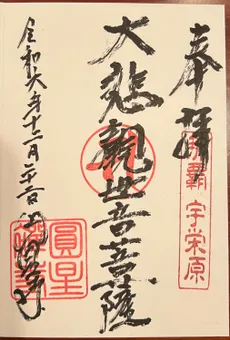 奉拝
那覇 宇栄原
大悲觀世音菩薩
令和六年十二月
圓星